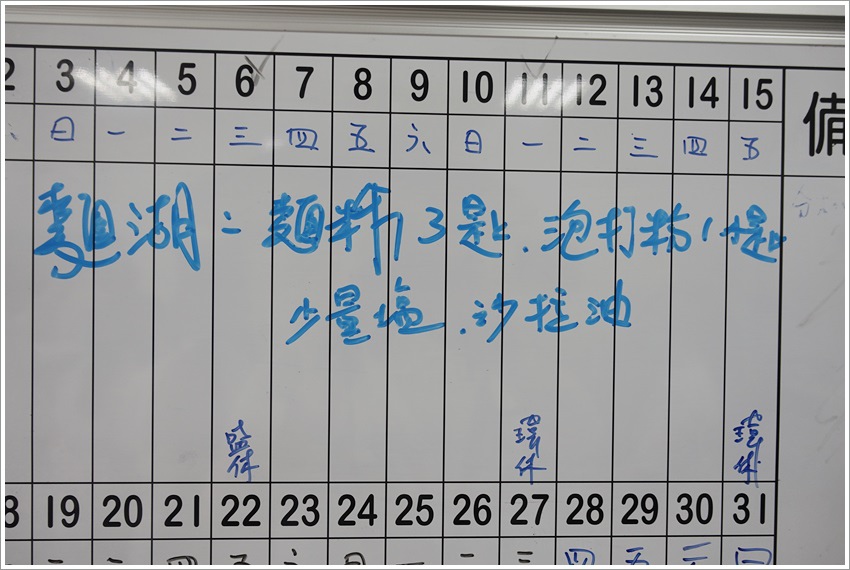 2 3 4 5 6 7 8 9 10 11 12 13 14 15 備
日 一 二 三 四 五 六 日 一 二 三 四 五
麵湖：麵料 3匙、泡打粉1小匙
少量塩、沙拉油
休 休 休
8 19 20 21 22 23 24 25 26 27 28 29 30 31